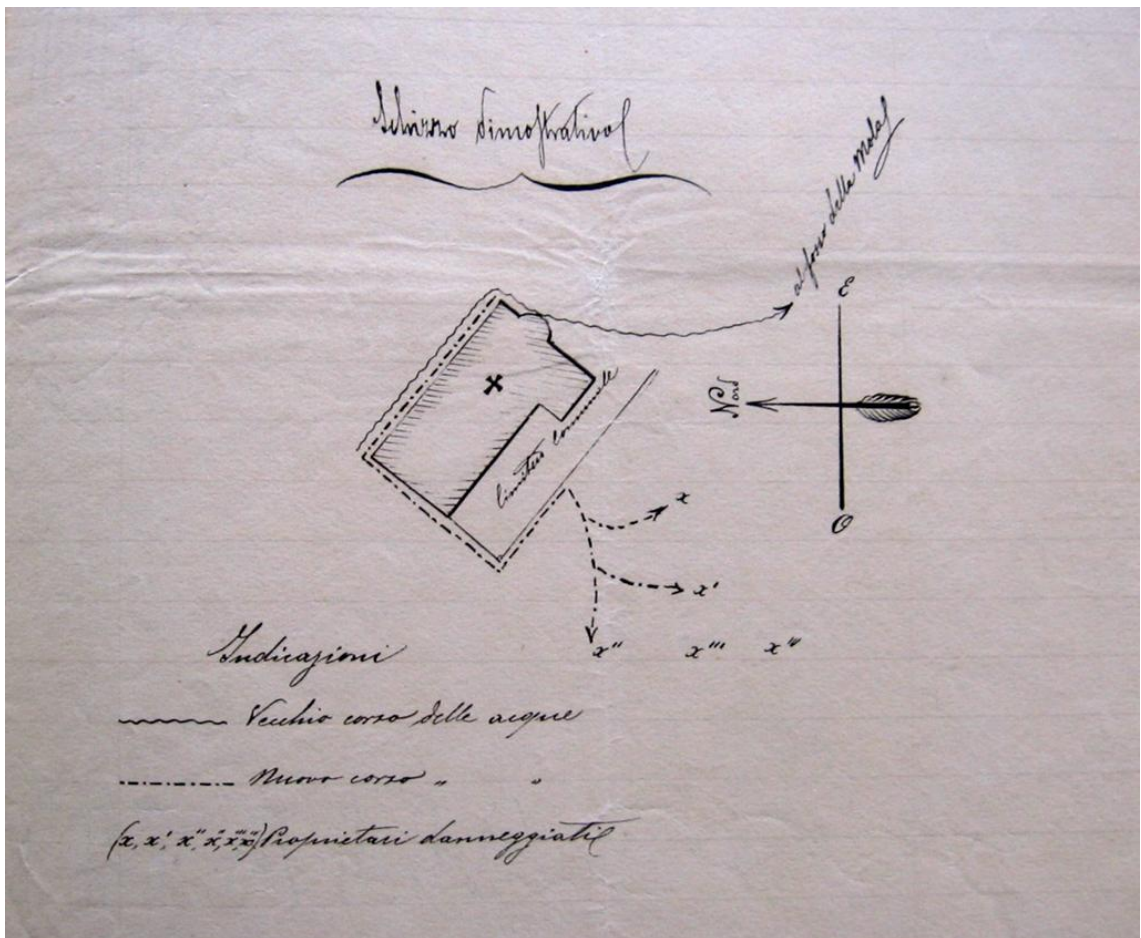 Schizzo dimostrativo
al fosso della Mola
E
Nord
O
limitero comunale
x
x'
x" x''' x''''
Indicazioni
Vecchio corso delle acque
Nuovo corso " "
(x, x', x", x''', x'''') Proprietari danneggiati